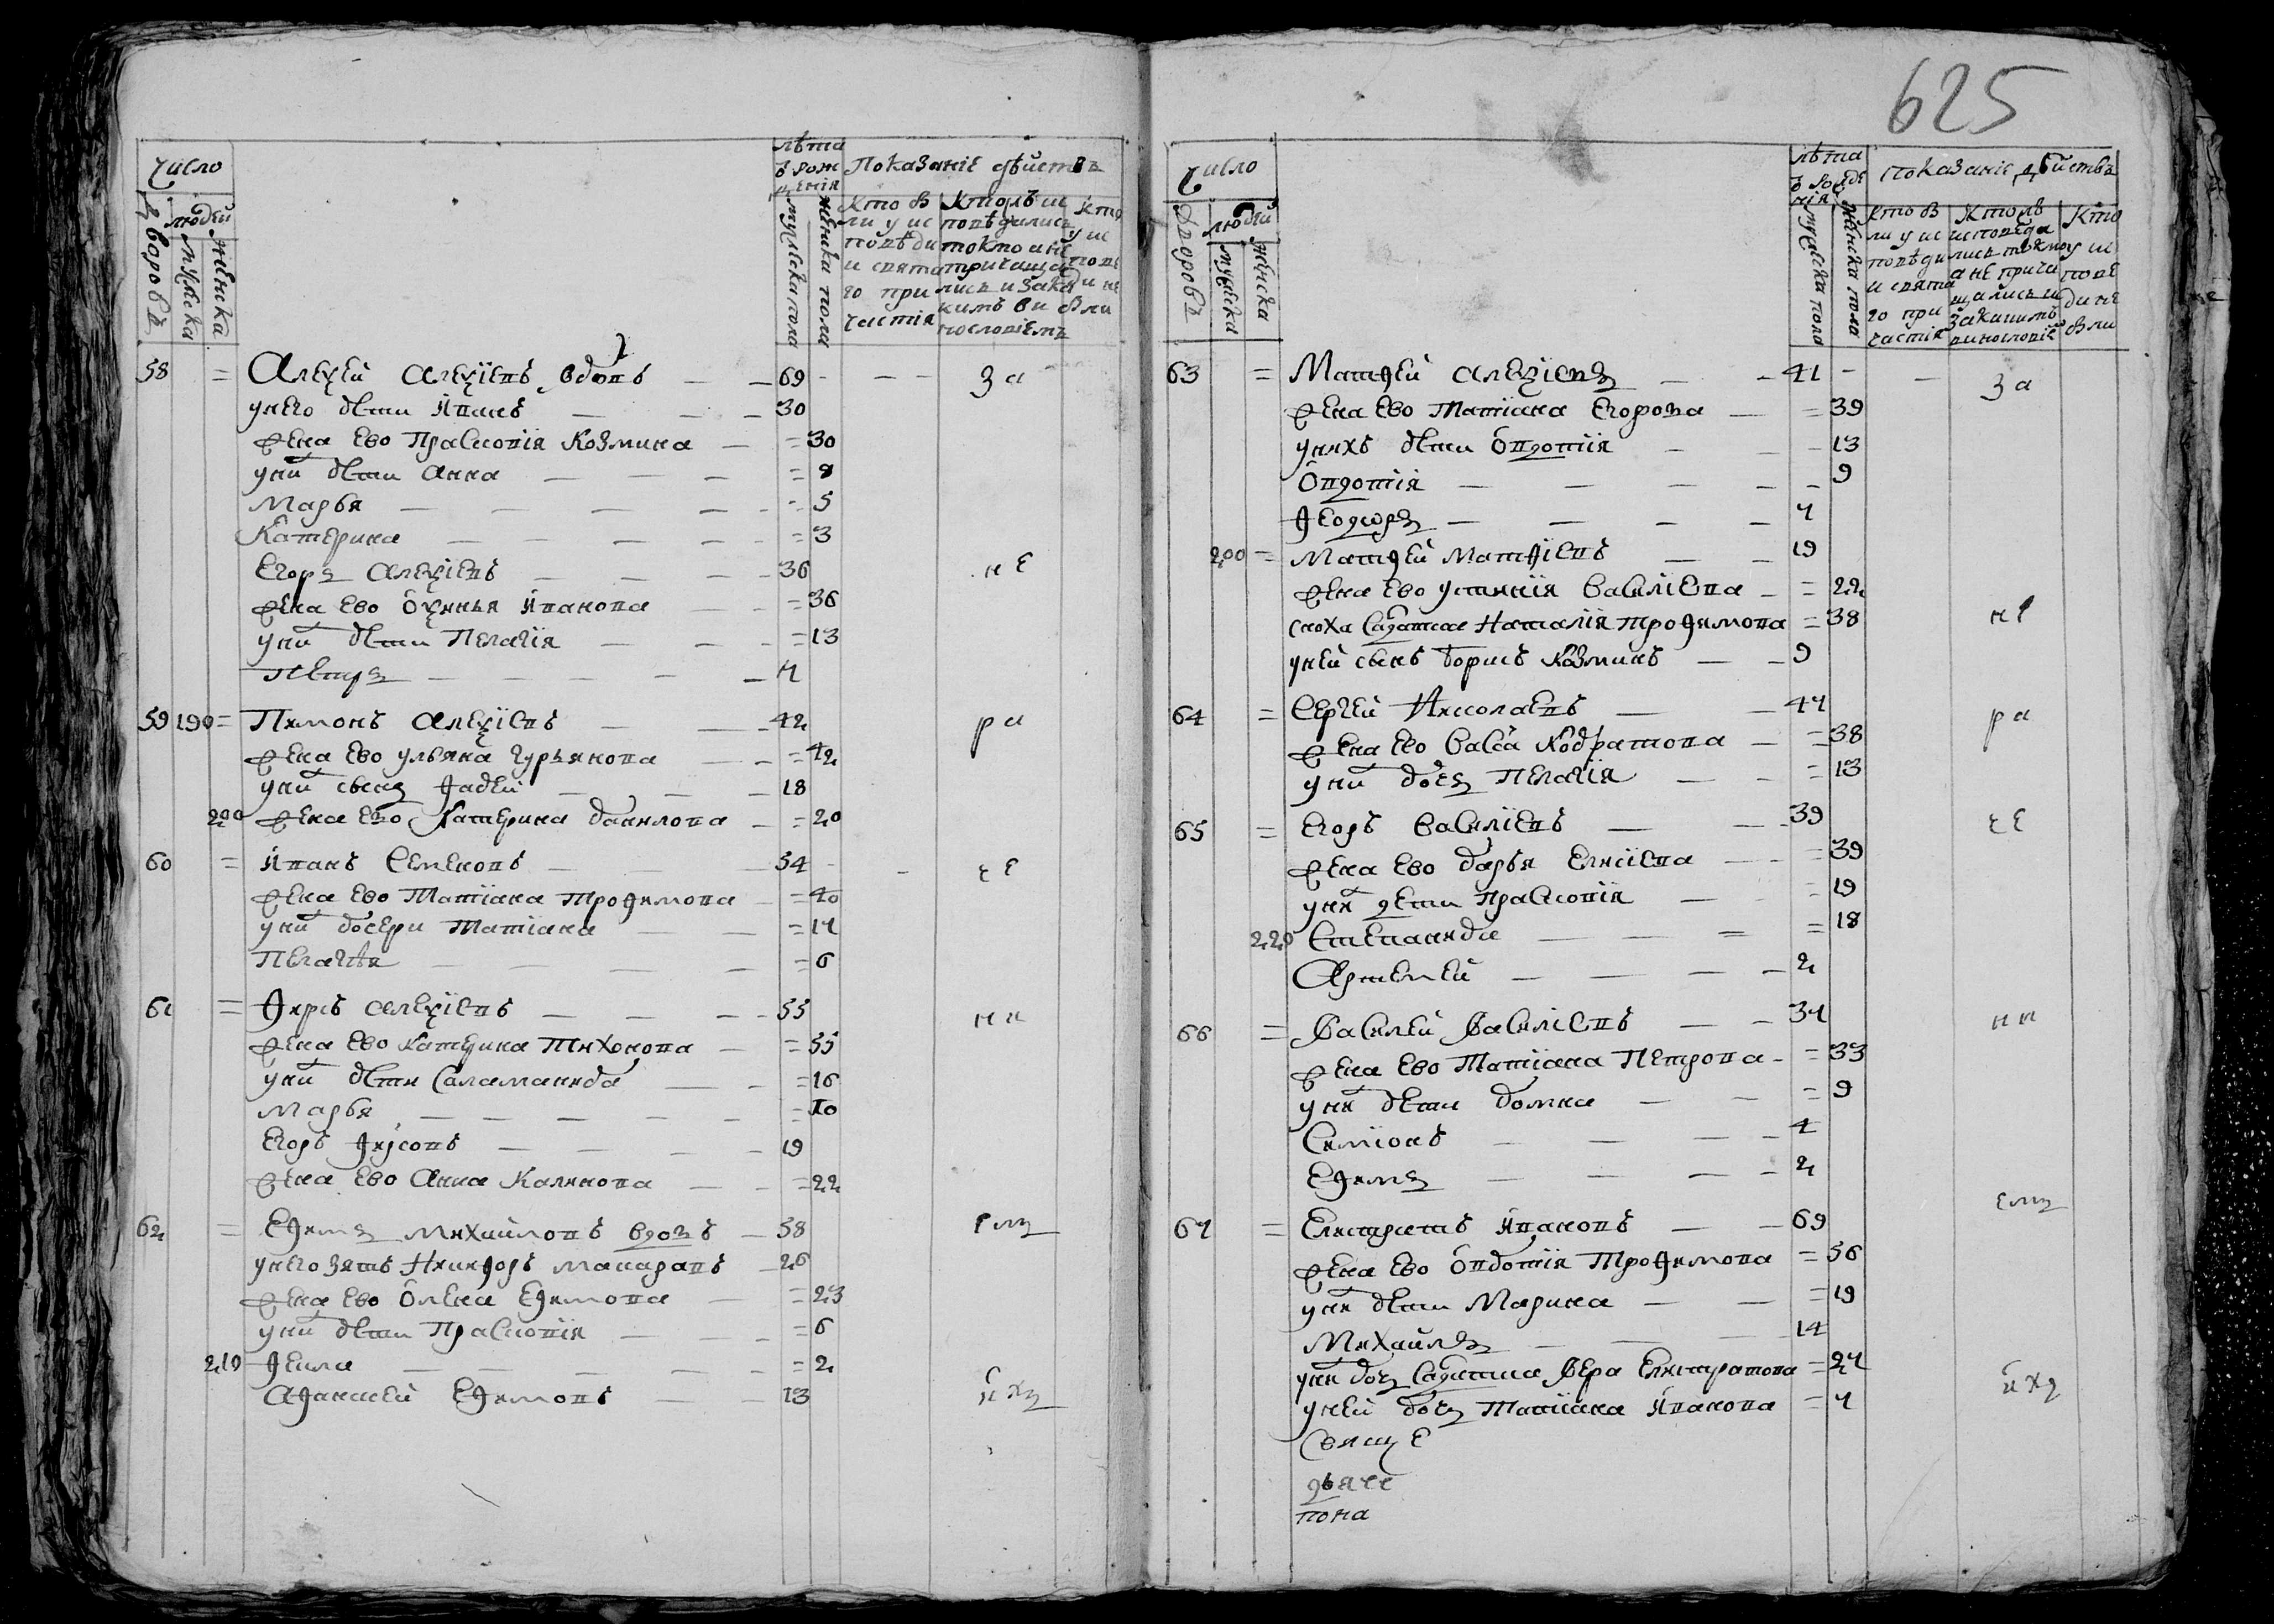 625
число
дворовъ
людей
мужска
женска
лѣта ѿ рождения
мужска пола
женска пола
Показаніе дѣйствъ
кто были у исповѣди и святаго причастія
кто исповѣдались токмо а не причащались и за какимъ винословіемъ
кто у исповѣди не были
58 = Алеѯей Алеѯіевъ вдовъ — — 69 - - - за
у него дѣти Иванъ — — — 30
жена ево Праскопія Козмина — = 30
у ни дѣти Анна — — — = 8
Марья — — — — — 5
Катерина — — — — — = 3
Егоръ Алеѯіевъ — — — 36 не
жена ево Оѯинья Иванова — — = 36
у ни дѣти Пелагія — — — = 13
Петръ — — — — — 7
59 190 = Пимонъ Алеѯіевъ — — 42 ра
жена ево Ульяна Гурьянова — — = 42
у ни сынъ Фадей — — — 18
200 жена ево Катерина Данилова — = 20
60 = Иванъ Семеновъ — — — 54 - - че
жена ево Татіана Трофимова — = 40
у ни дочери Татіана — — = 17
Пелагѣя — — — — = 6
61 = Фирсъ Алеѯіевъ — — — 55 ни
жена ево Катерина Тихонова — = 55
у ни дѣти Саламанида — — = 16
Марья — — — — — = 10
Егоръ Фирсовъ — — — — 19
жена ево Анна Калинова — — = 22
62 = Ефимъ Михайловъ вдовъ — 58 емъ
у него зять Никифоръ Макаровъ — 26
жена ево Олена Ефимова — = 23
у ни дѣти Праскопія — — — = 6
210 Фекла — — — — = 2
Афанасей Ефимовъ — — 13 ихъ
число
дворовъ
людей
мужска
женска
лѣта ѿ рожденія
мужска пола
женска пола
показаніе дѣйствъ
кто были у исповѣди и святаго причастія
кто исповѣдались токмо а не причащались и за какимъ винословіе
кто у исповеди не были
63 = Матфей Алеѯіевъ — — 41 - - за
жена ево Татіана Егорова — = 39
у нихъ дѣти Овдотія — — 13
Овдотія — — — — — 9
Феодоръ — — — — 7
200 = Матфей Матфіевъ — — 19
жена ево Устинія Василіева — = 22
сноха салдатка Наталія Трофимова = 38 не
у ней сынъ Борисъ Козминъ — — 9
64 = Сергей Николаевъ — — 47 ра
жена ево Васса Кодратова — = 38
у ни дочь Пелагія — — = 13
65 = Егоръ Василіевъ — — 39 че
жена ево Дарья Елисіева — — = 39
у ни дети Праскопія — — = 19
220 Степанида — — — = 18
Артемей — — — — 2
66 = Василей Василіевъ — — 37 ни
жена ево Татіана Петрова — = 33
у ни дѣти Домна — — = 9
Симіонъ — — — — 4
Ефимъ — — — — 2
67 = Елистратъ Ивановъ — — 69 емъ
жена ево Овдотія Трофимова = 56
у ни дѣти Марина — — = 19
Михайлъ — — — 14
у ни дочь салдатка Вера Елистратова = 27 ихъ
у ней дочь Татіана Иванова = 7
Свяще
дьяче
пона